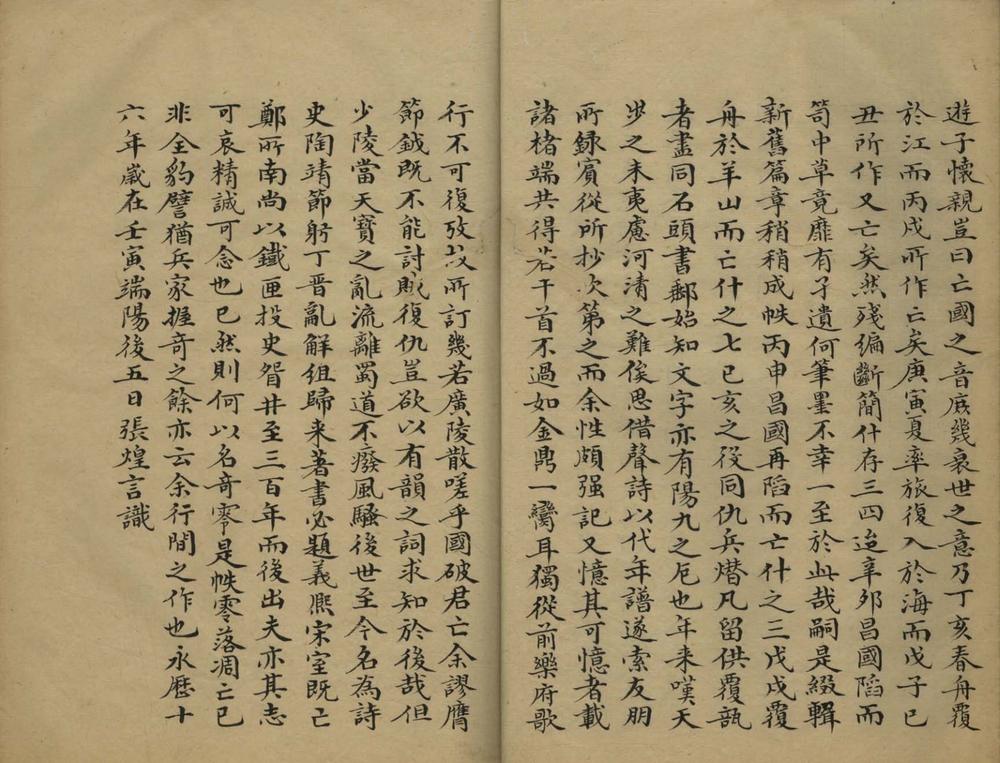 遊子懷親豈曰亡國之音庶幾哀世之意乃丁亥春舟覆
於江而丙戌所作亡矣庚寅夏率旅復入於海而戊子己
丑所作又亡矣然殘編斷簡什存三四迨辛夘昌國陷而
笥中草竟靡有孑遺何筆墨不幸一至於此哉嗣是綴輯
新舊篇章稍稍成帙丙申昌國再陷而亡什之三戊戌覆
舟於羊山而亡什之七己亥之役同仇兵熸凡留供覆瓿
者盡同石頭書郵始知文字亦有陽九之厄也年来嘆天
步之未夷慮河清之難俟思借聲詩以代年譜遂索友朋
所録賓從所抄次第之而余性頗强記又憶其可憶者載
諸楮端共得若干首不過如金鼎一臠耳獨從前樂府歌
行不可復攷故所訂幾若廣陵散嗟乎國破君亡余謬膺
節鉞既不能討賊復仇豈欲以有韻之詞求知於後哉但
少陵當天寶之亂流離蜀道不癈風騷後世至今名為詩
史陶靖節躬丁晉亂解組歸来著書必題義熙宋室既亡
鄭所南尚以鐵匣投史眢井至三百年而後出夫亦其志
可哀精誠可念也已然則何以名奇零是帙零落凋亡已
非全豹譬猶兵家握奇之餘亦云余行間之作也永歷十
六年歲在壬寅端陽後五日張煌言識